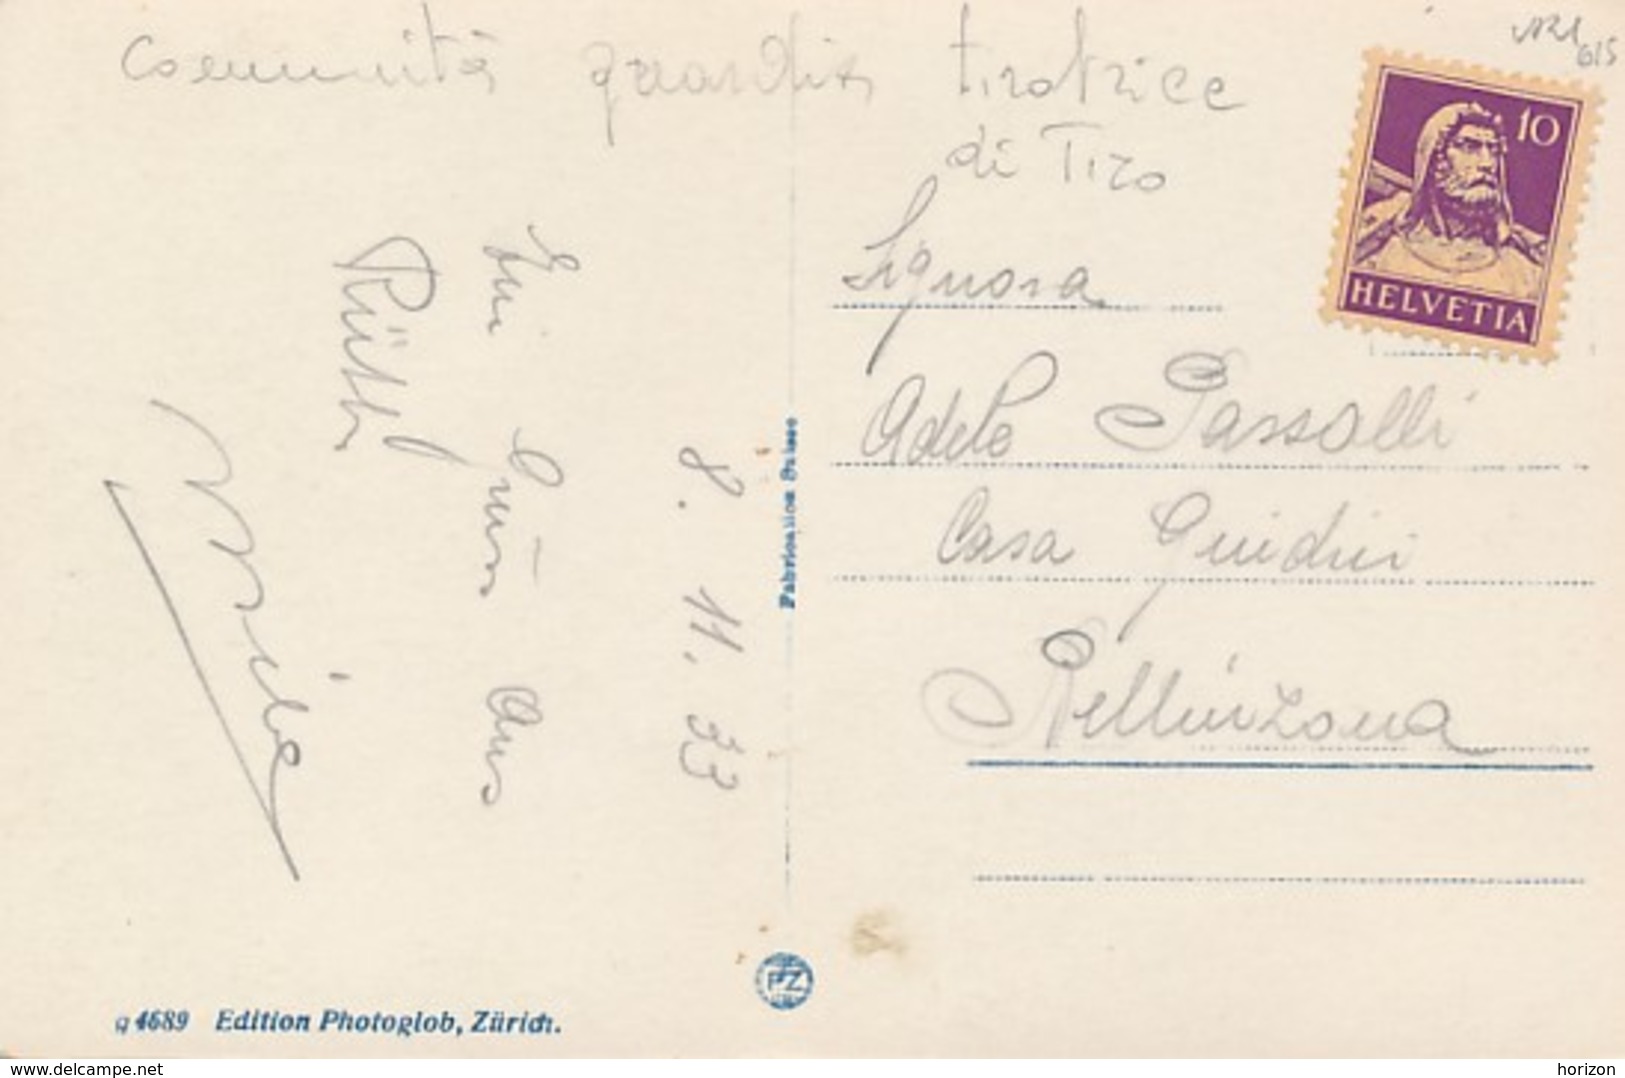 Comunità guardia tiratrice
di Tiro
10
HELVETIA
Signora
Adele Passalli
Casa Guidini
Bellinzona
Ein Gruss aus
Rütli
8. 11. 33
Fabrication Suisse
PZ
g 4689 Edition Photoglob, Zürich.
www.delcampe.net
horizon